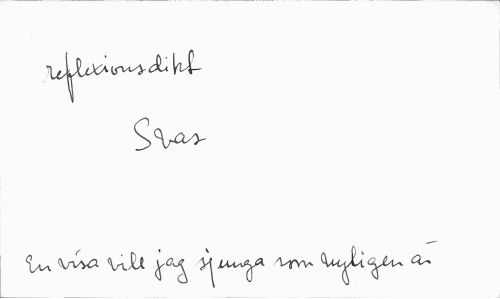 reflexionsdikt
Svar
En visa vill jag sjunga som nyligen är